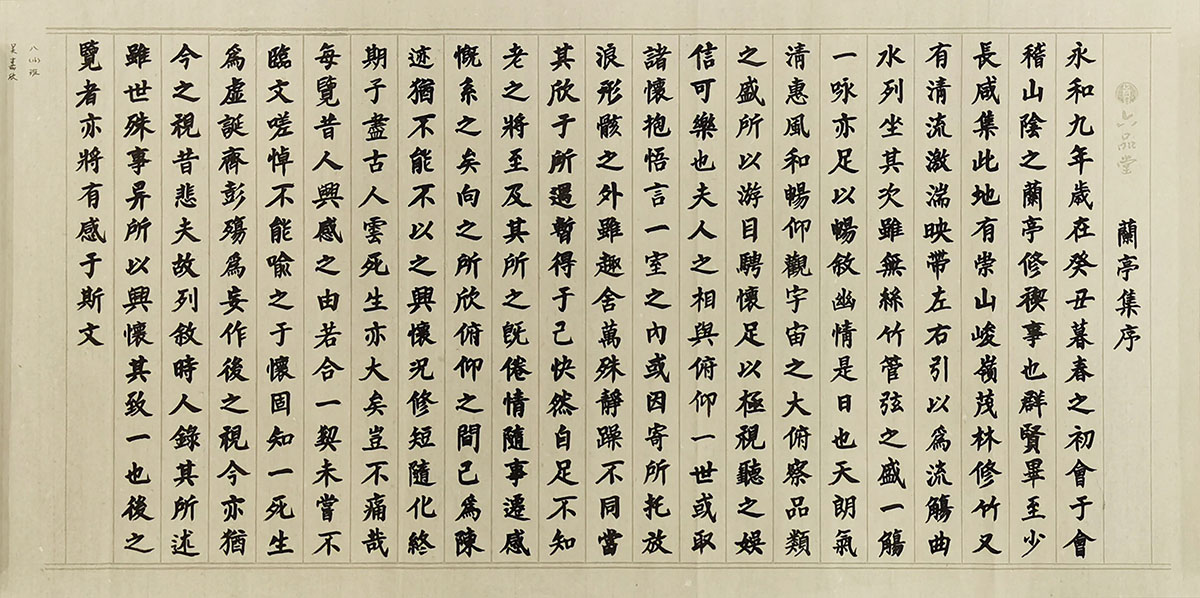 六品堂
蘭亭集序
永和九年歲在癸丑暮春之初會于會
稽山陰之蘭亭修禊事也群賢畢至少
長咸集此地有崇山峻嶺茂林修竹又
有清流激湍映帶左右引以爲流觴曲
水列坐其次雖無絲竹管弦之盛一觴
一咏亦足以暢敘幽情是日也天朗氣
清惠風和暢仰觀宇宙之大俯察品類
之盛所以游目騁懷足以極視聽之娛
信可樂也夫人之相與俯仰一世或取
諸懷抱悟言一室之內或因寄所托放
浪形骸之外雖趣舍萬殊靜躁不同當
其欣于所遇暫得于己快然自足不知
老之將至及其所之既倦情隨事遷感
慨系之矣向之所欣俯仰之間已爲陳
迹猶不能不以之興懷况修短隨化終
期于盡古人雲死生亦大矣豈不痛哉
每覽昔人興感之由若合一契未嘗不
臨文嗟悼不能喻之于懷固知一死生
爲虛誕齊彭殤爲妄作後之視今亦猶
今之視昔悲夫故列敘時人錄其所述
雖世殊事异所以興懷其致一也後之
覽者亦將有感于斯文